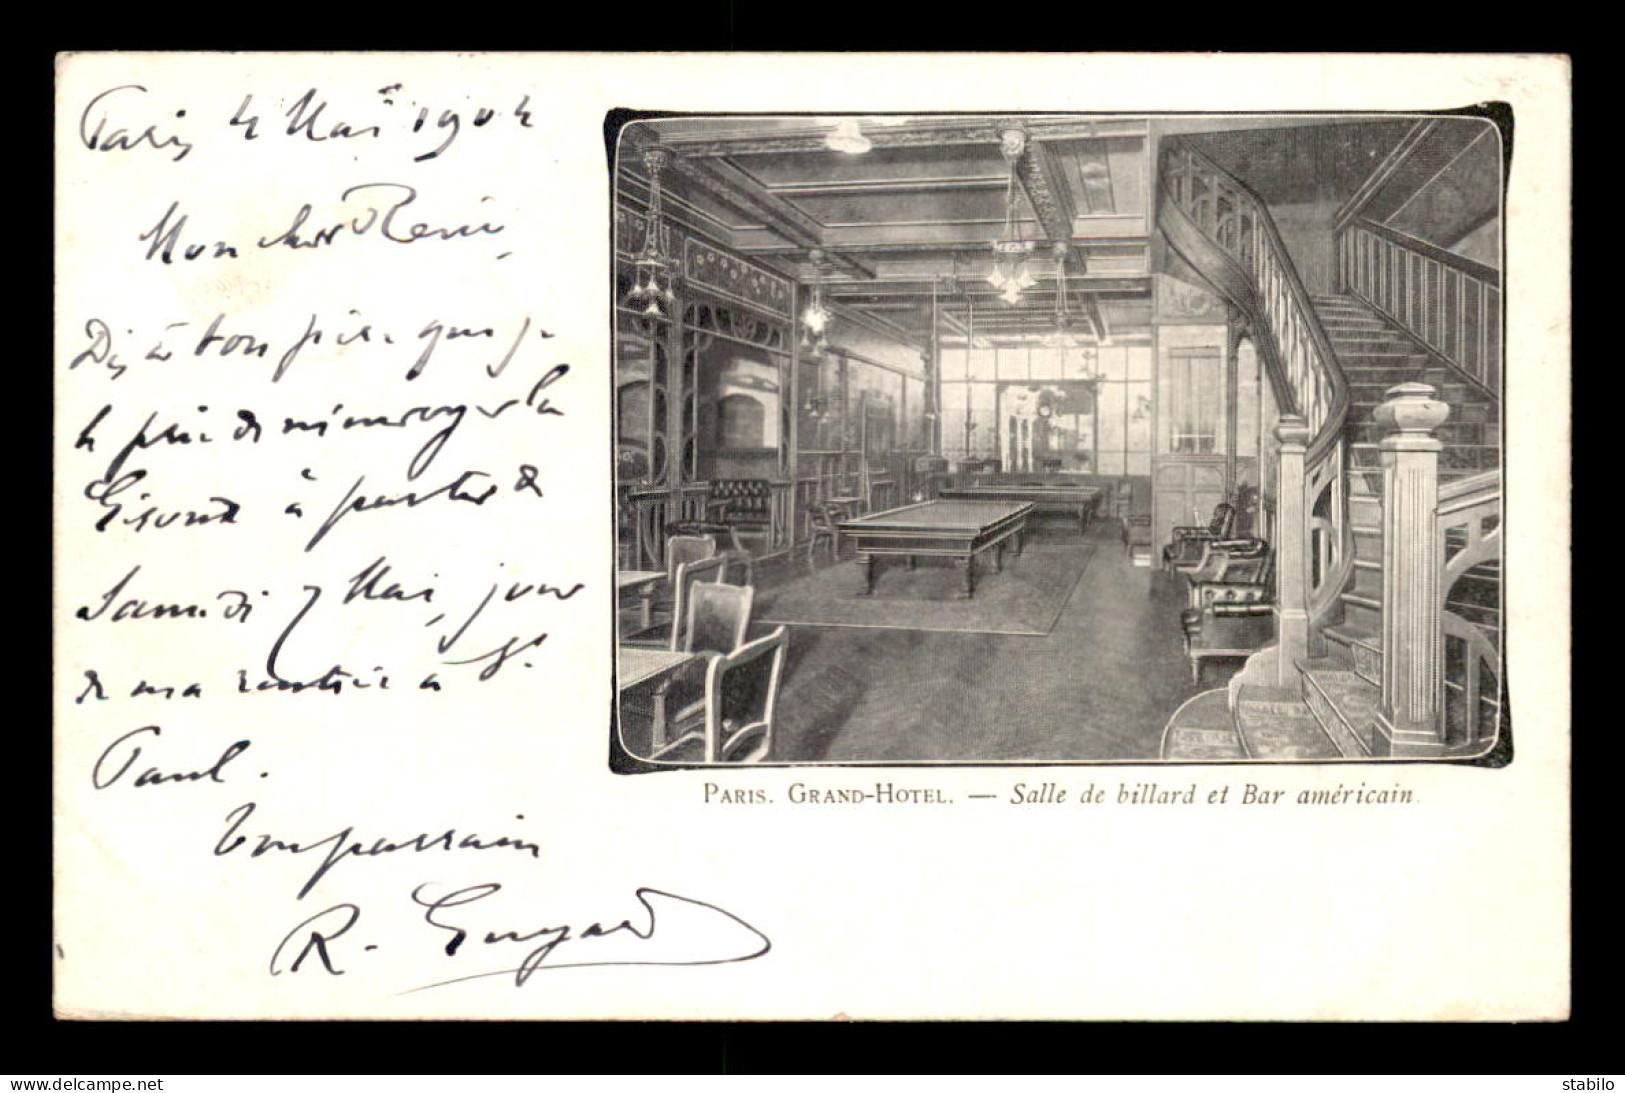 Paris 4 Mai 1904
Mon cher René,
Dis à ton père que je
le prie de m'envoyer la
Gironde à partir de
Samedi 7 Mai, jour
de ma rentrée à St
Paul.
Ton parrain
R. Guyard
PARIS. GRAND-HOTEL. — Salle de billard et Bar américain.
delcampe.net
stabilo